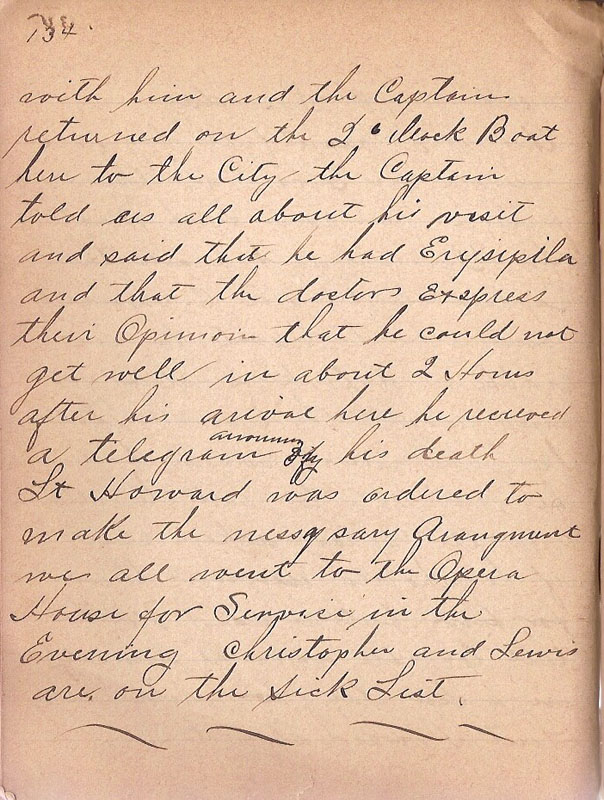 134.
with him and the Captain
returned on the 2 o clock Boat
here to the City the Captain
told us all about his visit
and said that he had Erysipila
and that the doctors Exspress
their Opinion that he could not
get well in about 2 Hours
after his arivae here he recieved
a telegram his death
Lt Howard was ordered to
make the nessysary Arangment
we all went to the Opera
House for Servise in the
Evening Christopher and Lewis
are on the Sick List.